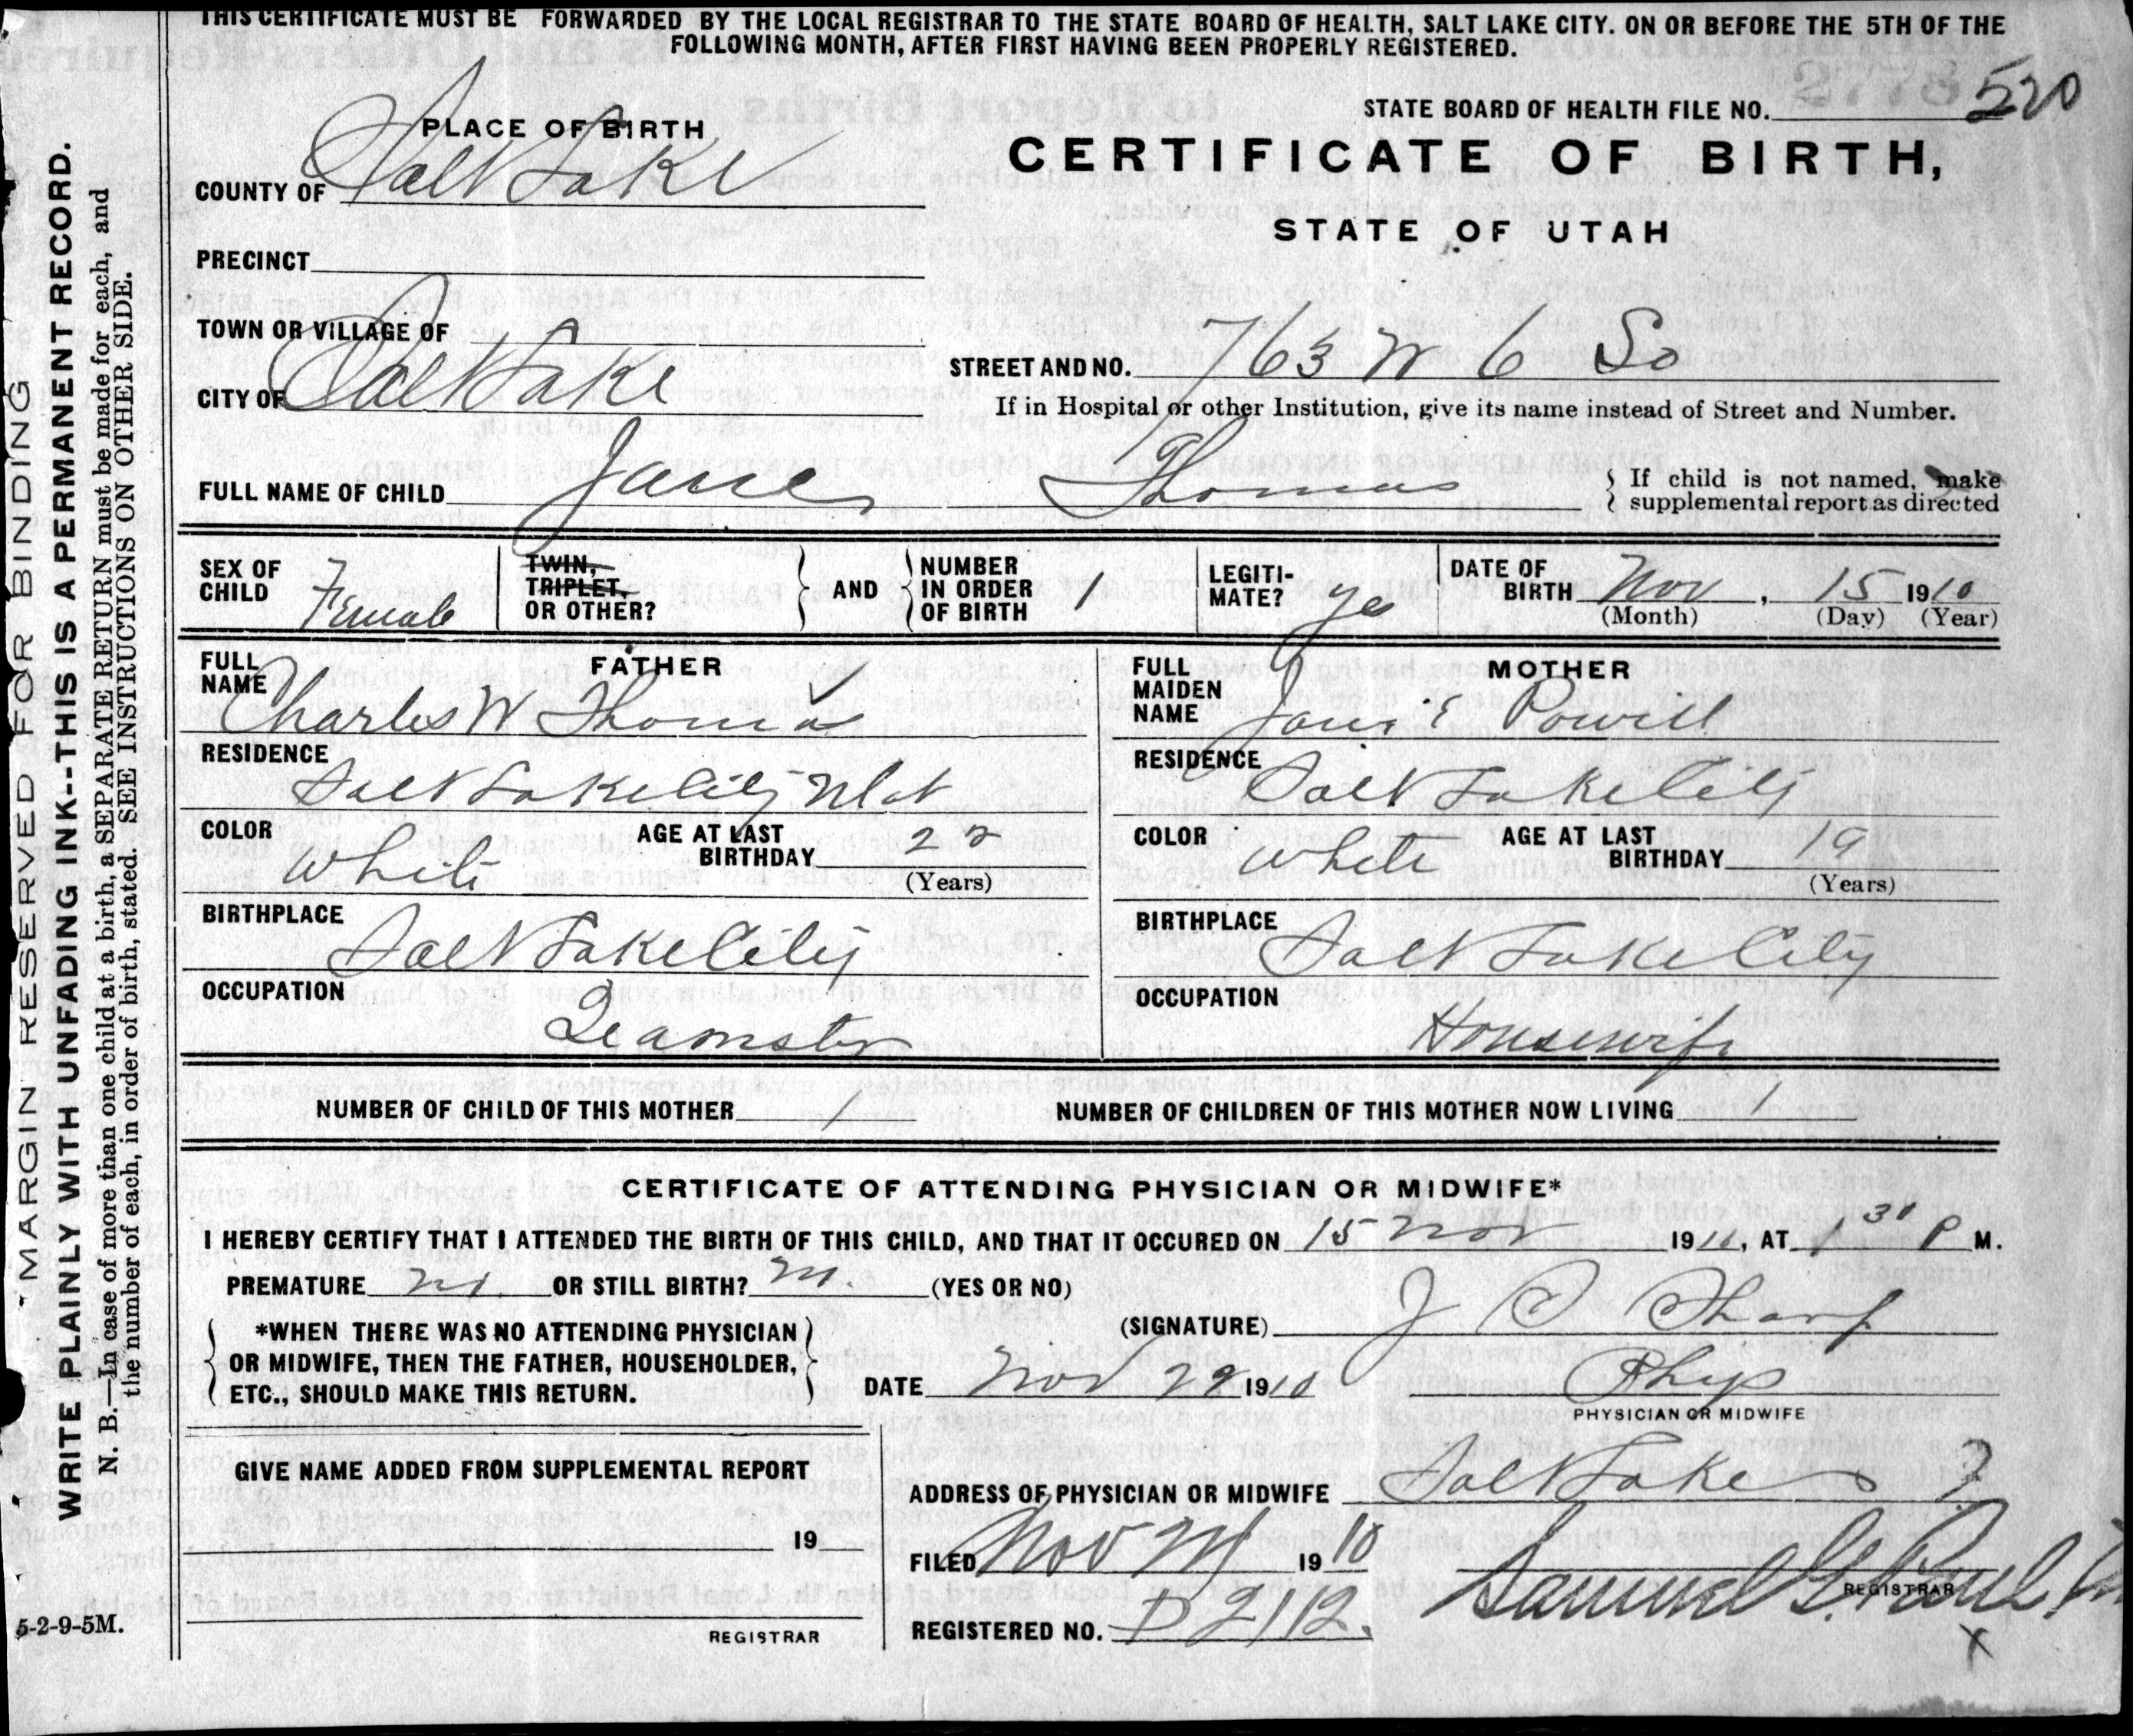 THIS CERTIFICATE MUST BE FORWARDED BY THE LOCAL REGISTRAR TO THE STATE BOARD OF HEALTH, SALT LAKE CITY. ON OR BEFORE THE 5TH OF THE
FOLLOWING MONTH, AFTER FIRST HAVING BEEN PROPERLY REGISTERED.
STATE BOARD OF HEALTH FILE NO. 520
PLACE OF BIRTH
CERTIFICATE OF BIRTH,
COUNTY OF Salt Lake
STATE OF UTAH
PRECINCT
TOWN OR VILLAGE OF
STREET AND NO. 763 W 6 So
CITY OF Salt Lake
If in Hospital or other Institution, give its name instead of Street and Number.
FULL NAME OF CHILD Jane Thomas
If child is not named, make
supplemental report as directed
SEX OF CHILD Female
TWIN, TRIPLET, OR OTHER?
AND
NUMBER IN ORDER OF BIRTH 1
LEGITI-MATE? yes
DATE OF BIRTH Nov, 15 1910
(Month) (Day) (Year)
FATHER
FULL NAME Charles W Thomas
RESIDENCE
Salt Lake City Utah
COLOR White
AGE AT LAST BIRTHDAY 22
(Years)
BIRTHPLACE
Salt Lake City
OCCUPATION
Teamster
MOTHER
FULL MAIDEN NAME Jane E Powell
RESIDENCE
Salt Lake City
COLOR White
AGE AT LAST BIRTHDAY 19
(Years)
BIRTHPLACE
Salt Lake City
OCCUPATION
Housewife
NUMBER OF CHILD OF THIS MOTHER 1
NUMBER OF CHILDREN OF THIS MOTHER NOW LIVING 1
CERTIFICATE OF ATTENDING PHYSICIAN OR MIDWIFE*
I HEREBY CERTIFY THAT I ATTENDED THE BIRTH OF THIS CHILD, AND THAT IT OCCURED ON 15 Nov 1910, AT 1 30 P M.
PREMATURE no. OR STILL BIRTH? no. (YES OR NO)
*WHEN THERE WAS NO ATTENDING PHYSICIAN
OR MIDWIFE, THEN THE FATHER, HOUSEHOLDER,
ETC., SHOULD MAKE THIS RETURN.
(SIGNATURE) J C Tharp
DATE Nov 29 1910
Phys
PHYSICIAN OR MIDWIFE
GIVE NAME ADDED FROM SUPPLEMENTAL REPORT
19
REGISTRAR
ADDRESS OF PHYSICIAN OR MIDWIFE Salt Lake
FILED Nov 1910
Samuel G. Paul
REGISTRAR
REGISTERED NO. D 2112.
5-2-9-5M.
MARGIN RESERVED FOR BINDING
WRITE PLAINLY WITH UNFADING INK--THIS IS A PERMANENT RECORD.
N. B.—In case of more than one child at a birth, a SEPARATE RETURN must be made for each, and
the number of each, in order of birth, stated. SEE INSTRUCTIONS ON OTHER SIDE.